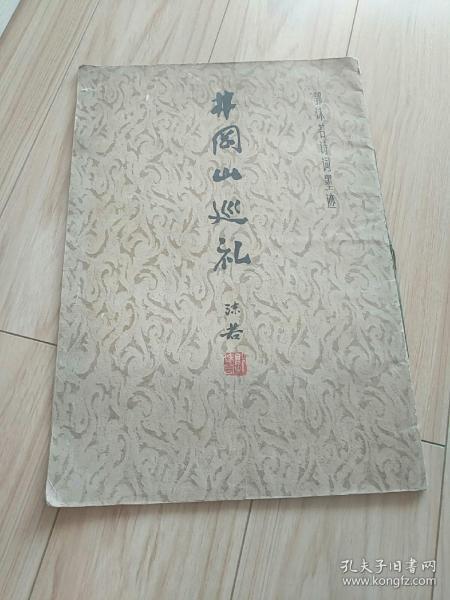 郭沫若诗词墨迹
井岡山巡礼
沫若
孔夫子旧书网
www.kongfz.com